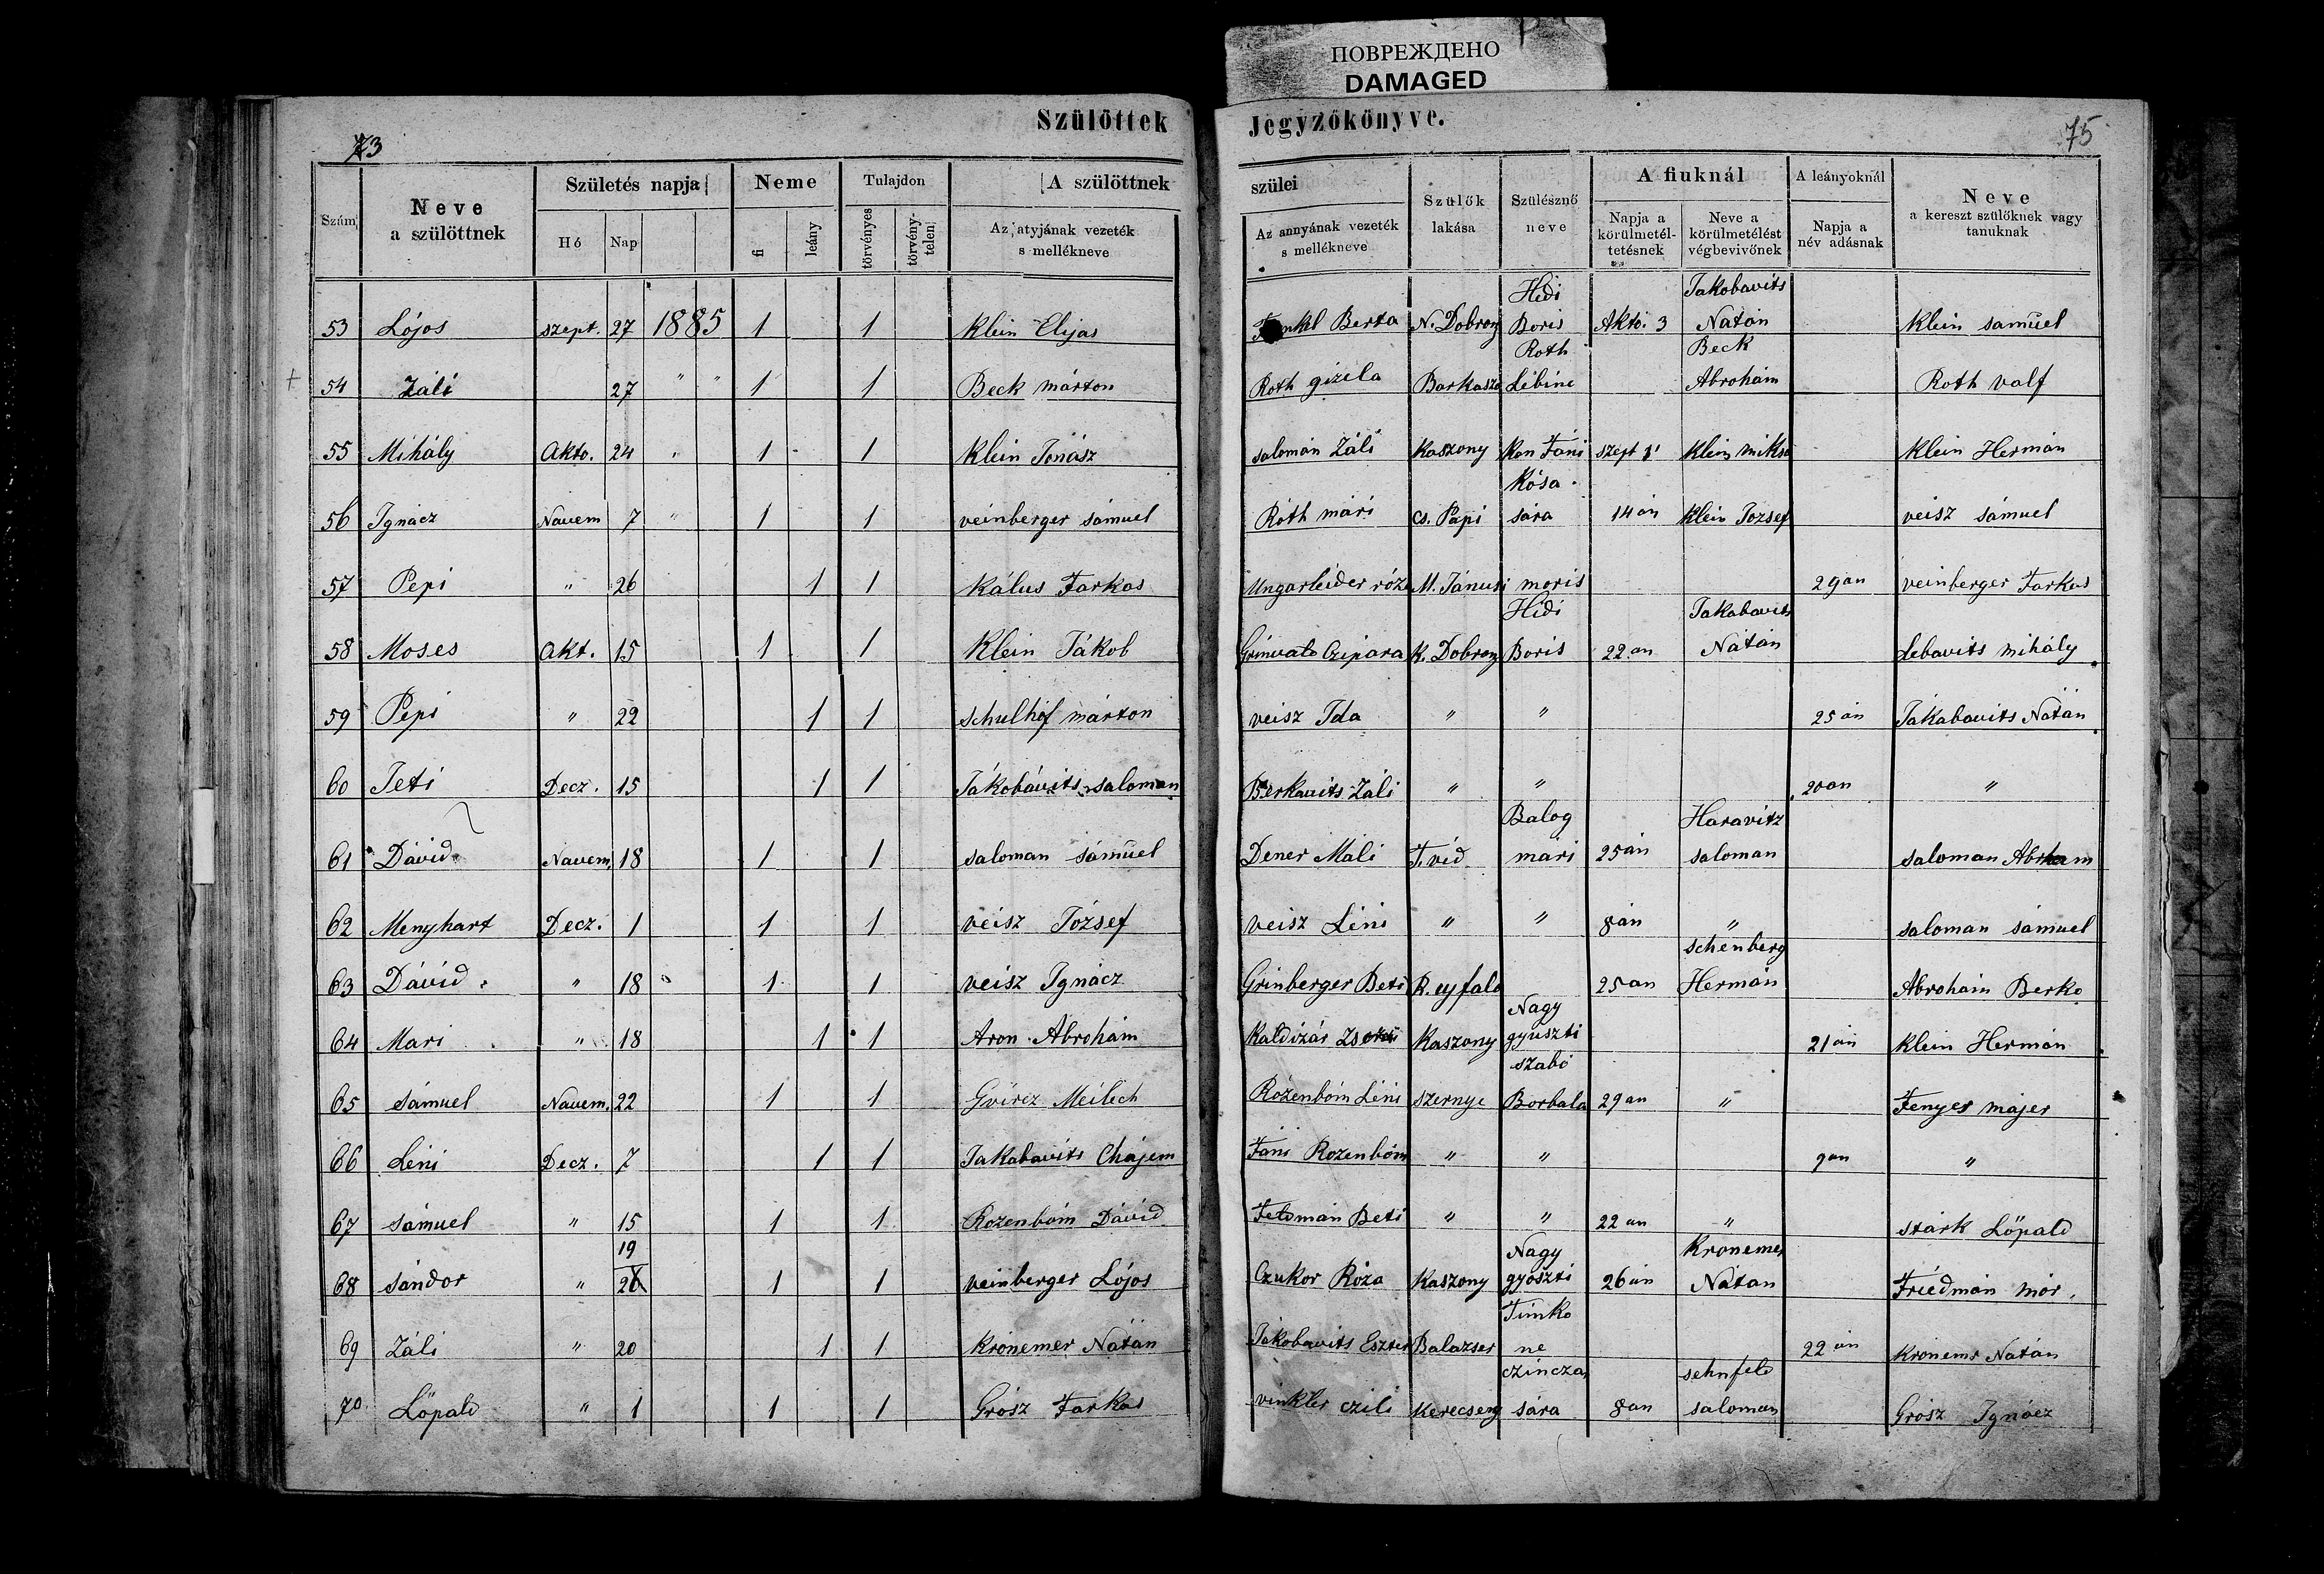 ПОВРЕЖДЕНО
DAMAGED
Szülöttek Jegyzőkönyve.
73 75
Szám Neve a szülöttnek Születés napja Neme Tulajdon A szülöttnek szülei Szülők lakása Szülésznő neve A fiuknál A leányoknál Neve a kereszt szülőknek vagy tanuknak
Hó Nap fi leány törvényes törvénytelen Az atyjának vezeték s mellékneve Az annyának vezeték s mellékneve Napja a körülmetéltetésnek Neve a körülmetélést végbevivőnek Napja a név adásnak
Hidi Jakobavits
53 Lójos szept. 27 1885 1 1 Klein Elijas Berta N. Dobrony Boris Akto. 3 Nátán Klein samüel
Roth Beck
54 Záli 27 " " 1 1 Beck márton Roth gizela Barkaszo Lébine Abrohám Roth valf
55 Mihály Akto. 24 " 1 1 Klein Jonász salomán Záli Kaszony Kon Fáni szept Klein miksa Klein Hermán
Kósa
56 Ignácz Návem 7 " 1 1 veinberger sámuel Róth mári cs. Papi sára 14 án Klein Jozsef veisz sámuel
57 Pepi " 26 1 1 Kálus Farkas Ungarleider róza M. Jánusi moris 29 an veinberger Farkas
Hidi Jakabavits
58 Moses Akt. 15 1 1 Klein Jákob Grinvald Czipara K. Dobrony Boris 22 an Nátán Lebavits mihály
59 Pepi " 22 1 1 schulhóf márton veisz Ida " " 25 án Jákabavits Nátán
60 Jeti Decz. 15 1 1 Jákobávits saloman Berkavits Záli " " 20 an "
Balog Haravitz
61 Dávid Navem. 18 1 1 saloman sámüel Dener Máli T. vid mári 25 án saloman saloman Abrham
62 Menyhart Decz. 1 1 1 veisz József veisz Léni " " 8 án " saloman sámuel
schenberg
63 Dávid " 18 1 1 veisz Ignácz Grinberger Beti R. ujfalo 25 an Hermán Abrohám Berko
Nagy
64 Mari " 18 1 1 Aron Abrohám Kaldizár Kaszony gyuszti 21 án Klein Hermán
szabó
65 sámuel Navem. 22 1 1 Gvircz Meilech Rózenbóm Léni szernye Borbala 29 an " Fenyes májer
66 Leni Decz. 7 1 1 Jakabavits Chájem Fáni Rozenbóm " " 9 an "
67 sámuel " 15 1 1 Rozenbóm Dávid Feldmán Beti " " 22 an " stark Löpald
19 Nagy Kronemer
68 sándor " 1 1 veinberger Lójos Czukor Róza Kaszony gyoszti 26 án Nátan Friedmán mór
Timko
69 Záli " 20 1 1 Krónemer Nátán Jákobavits Eszter Balazser ne 22 án Kronemr Nátán
czinczas sehnfeld
70 Löpald " 1 1 1 Grósz Farkas vinkler czili Kerecseny sára 8 an saloman Grósz Ignácz